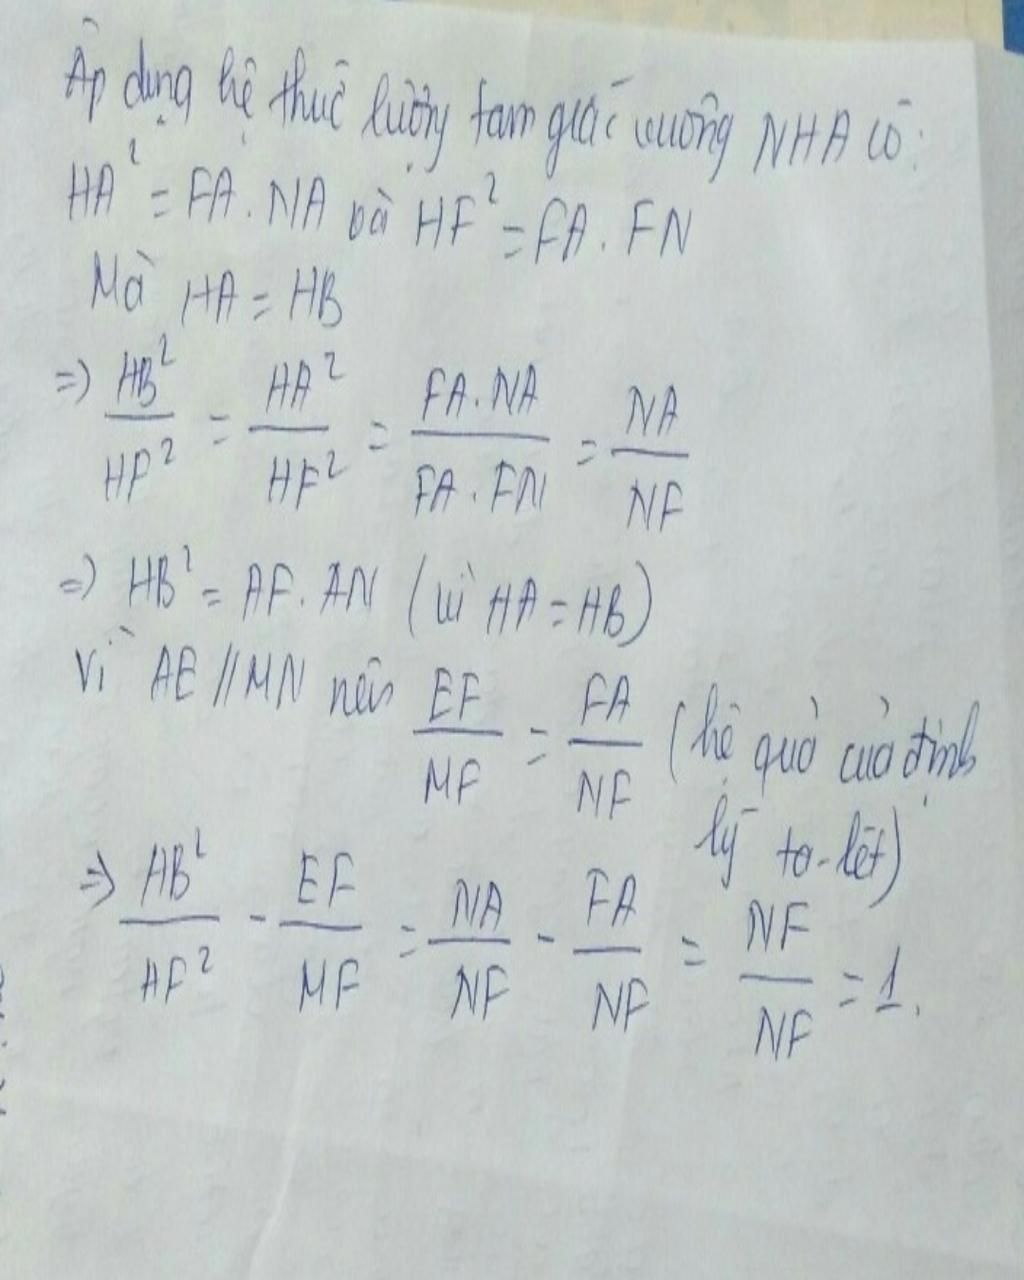 Áp dụng hệ thức lượng tam giác vuông NHA có:
HA² = FA. NA và HF² = FA. FN
Mà HA = HB
=> HB²/HF² = HA²/HF² = FA.NA/FA.FN = NA/NF
=> HB² = AF. AN (vì HA = HB)
Vì AE // MN nên EF/MF = FA/NF (hệ quả của định
lý ta-lét)
=> HB²/AF² - EF/MF = NA/NF - FA/NF = NF/NF = 1.